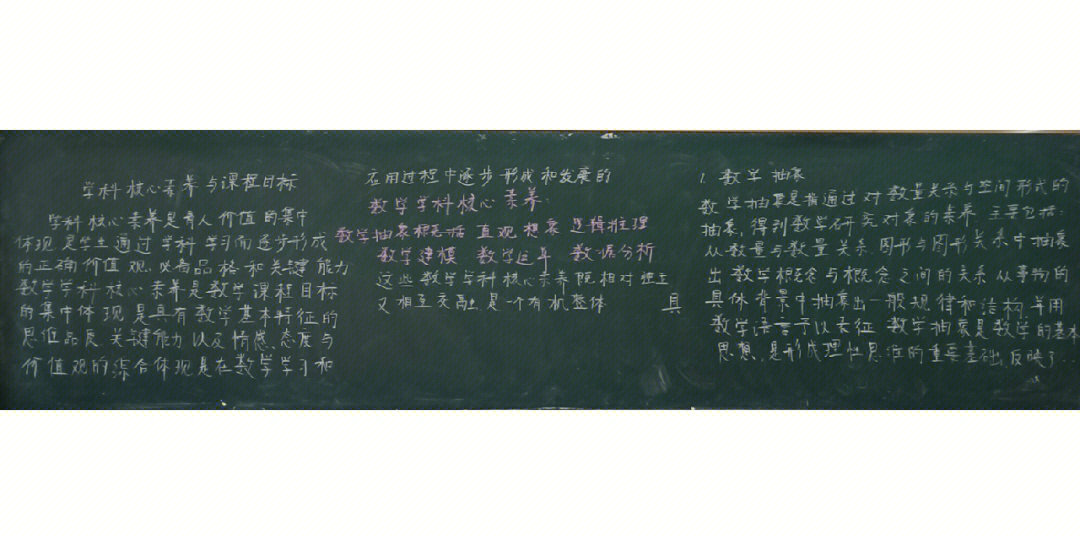 学科核心素养与课程目标
学科核心素养是育人价值的集中
体现是学生通过学科学习而逐步形成
的正确价值观、必备品格和关键能力
数学学科核心素养是数学课程目标
的集中体现是具有数学基本特征的
思维品质、关键能力以及情感、态度与
价值观的综合体现是在数学学习和
应用过程中逐步形成和发展的
数学学科核心素养:
数学抽象概括 直观想象 逻辑推理
数学建模 数学运算 数据分析
这些数学学科核心素养既相对独立
又相互交融是一个有机整体
具
1. 数学抽象
数学抽象是指通过对数量关系与空间形式的
抽象,得到数学研究对象的素养 主要包括:
从数量与数量关系图形与图形关系中抽象
出数学概念与概念之间的关系从事物的
具体背景中抽象出一般规律和结构,并用
数学语言予以表征 数学抽象是数学的基本
思想、是形成理性思维的重要基础,反映了...